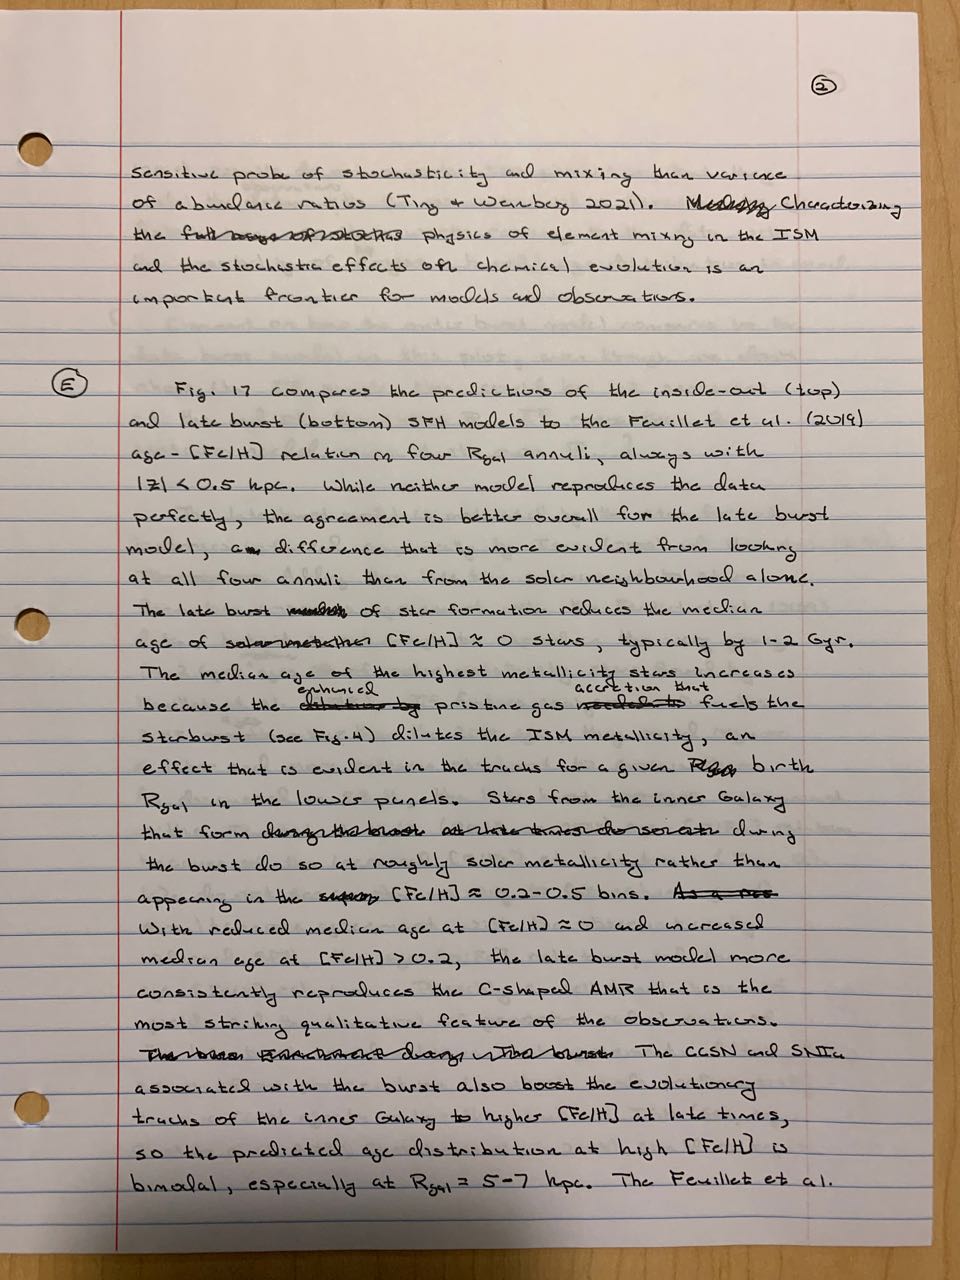 2
sensitive probe of stochasticity and mixing than variance
of abundance ratios (Ting & Weinberg 2021). Characterizing
the physics of element mixing in the ISM
and the stochastic effects on chemical evolution is an
important frontier for models and observations.
E
Fig. 17 compares the predictions of the inside-out (top)
and late burst (bottom) SFH models to the Feuillet et al. (2019)
age-[Fe/H] relation in four Rgal annuli, always with
|z| < 0.5 kpc. While neither model reproduces the data
perfectly, the agreement is better overall for the late burst
model, a difference that is more evident from looking
at all four annuli than from the solar neighbourhood alone.
The late burst of star formation reduces the median
age of [Fe/H] ≈ 0 stars, typically by 1-2 Gyr.
The median age of the highest metallicity stars increases
because the enhanced pristine gas accretion that fuels the
starburst (see Fig. 4) dilutes the ISM metallicity, an
effect that is evident in the tracks for a given birth
Rgal in the lower panels. Stars from the inner Galaxy
that form during
the burst do so at roughly solar metallicity rather than
appearing in the [Fe/H] ≈ 0.2-0.5 bins.
With reduced median age at [Fe/H] ≈ 0 and increased
median age at [Fe/H] > 0.2, the late burst model more
consistently reproduces the C-shaped AMR that is the
most striking qualitative feature of the observations.
The CCSN and SNIa
associated with the burst also boost the evolutionary
tracks of the inner Galaxy to higher [Fe/H] at late times,
so the predicted age distribution at high [Fe/H] is
bimodal, especially at Rgal = 5-7 kpc. The Feuillet et al.